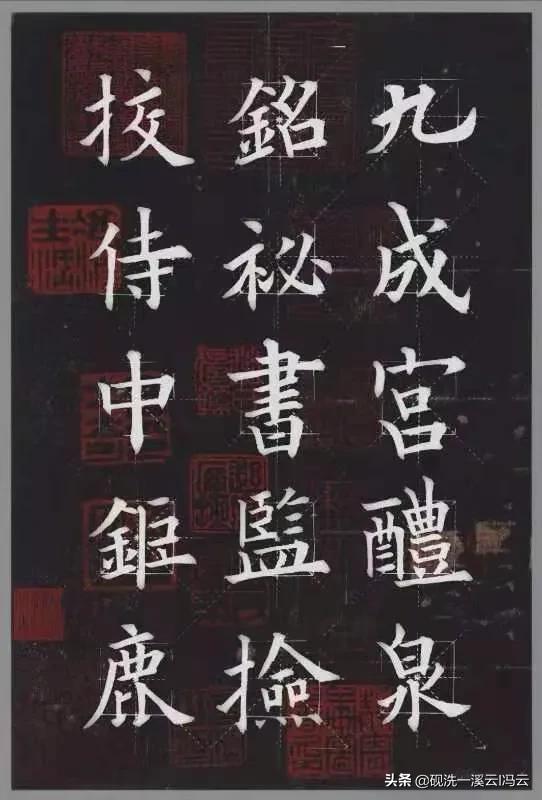 九成宮醴泉
銘祕書監撿
挍侍中鉅鹿
头条 @砚洗一溪云l冯云